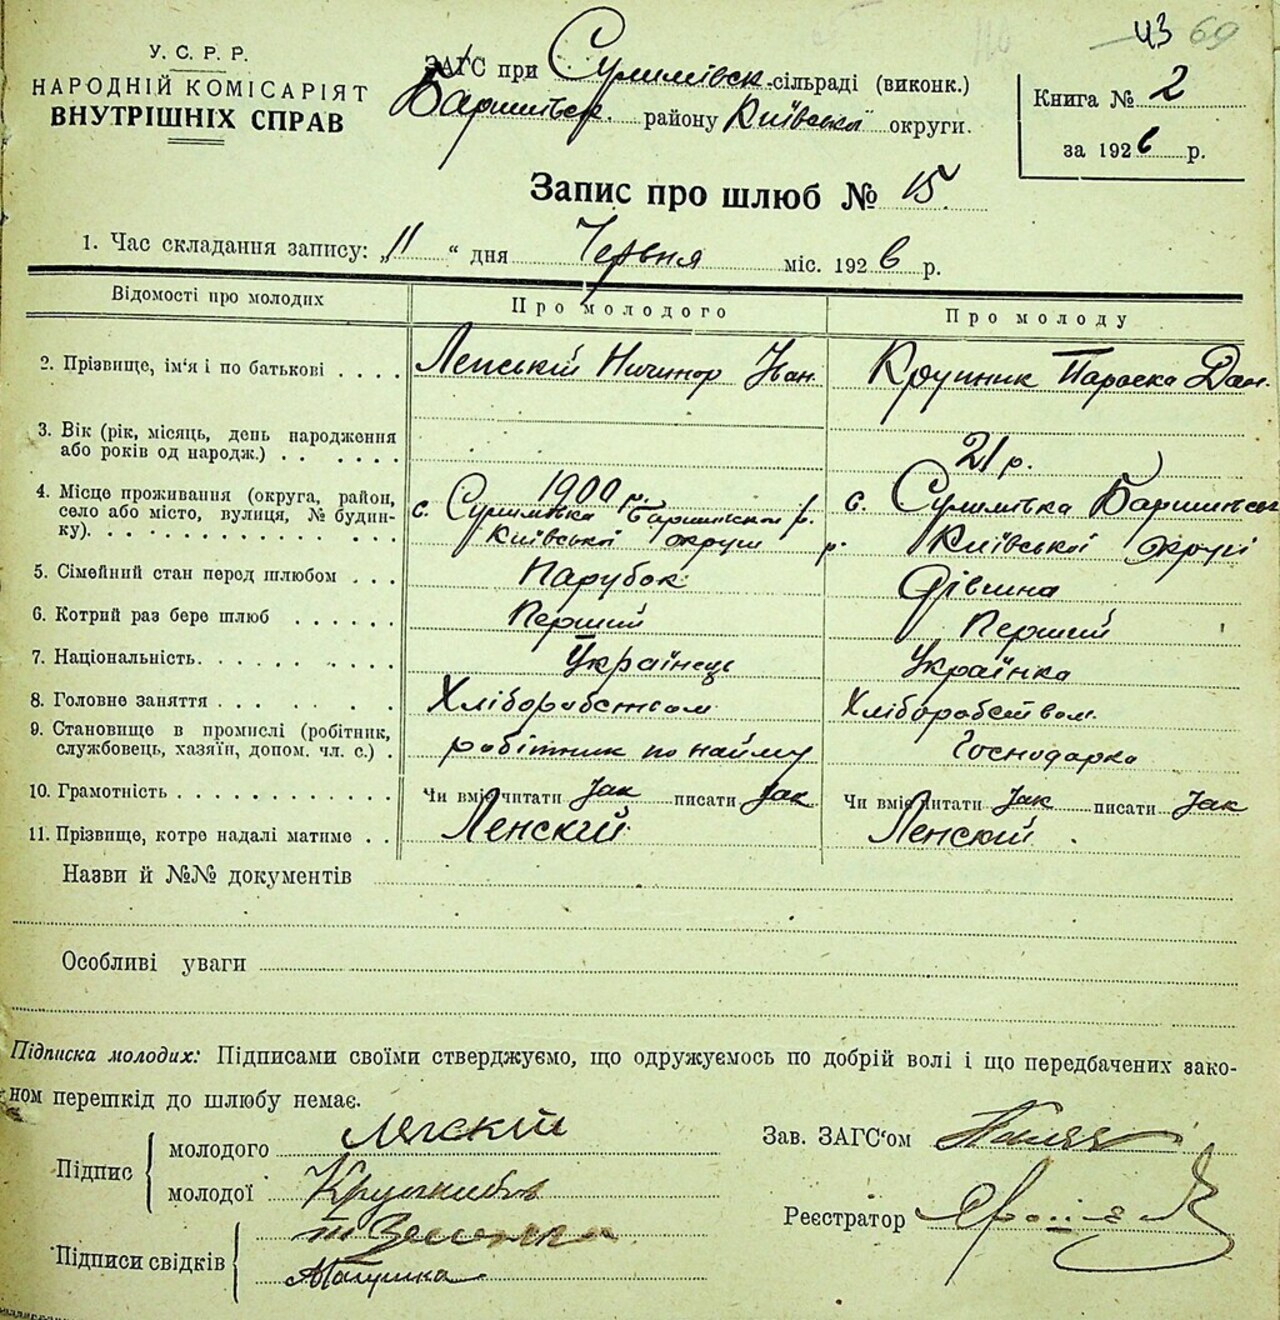 43 69
У. С. Р. Р.
НАРОДНІЙ КОМІСАРІЯТ
ВНУТРІШНІХ СПРАВ
ЗАГС при Сулимівск. сільраді (виконк.)
Баришівск. району Київської округи.
Книга № 2
за 1926 р.
Запис про шлюб № 15.
1. Час складання запису: „11“ дня Червня міс. 1926 р.
Відомості про молодих
Про молодого
Про молоду
2. Прізвище, ім'я і по батькові . . . .
Ленській Ничипор Іван.
Крупник Параска Дан.
3. Вік (рік, місяць, день народження
або років од народж.) . . . . . . .
1900 р.
21 р.
4. Місце проживання (округа, район,
село або місто, вулиця, № будин-
ку). . . . . . . . . . . . . . . .
с. Сулимівка Баришівской р.
Київської округи
с. Сулимівка Баришівськ
р. Київської округи
5. Сімейний стан перед шлюбом . . .
Парубок
Дівчина
6. Котрий раз бере шлюб . . . . . .
Перший
Перший
7. Національність. . . . . . . . . .
Українець
Українка
8. Головне заняття . . . . . . .
Хліборобством
Хліборобством.
9. Становище в промислі (робітник,
службовець, хазяїн, допом. чл. с.) .
робітник по найму
Господарка
10. Грамотність . . . . . . . . . . . .
Чи вміє читати Так писати Так
Чи вміє читати Так писати Так
11. Прізвище, котре надалі матиме . .
Ленский
Ленский.
Назви й №№ документів
Особливі уваги
Підписка молодих: Підписами своїми стверджуємо, що одружуємось по добрій волі і що передбачених зако-
ном перешкід до шлюбу немає.
Підпис
молодого
молодої
Зав. ЗАГС'ом
Реєстратор
Підписи свідків